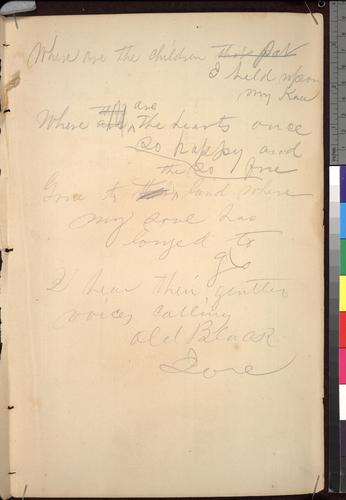 Where are the children that
I held upon
my Knee
Where are the hearts once
so happy and
the so free
Gone to the land where
my soul has
longed to
go
I hear their gentle
voices calling
old Black
Joe